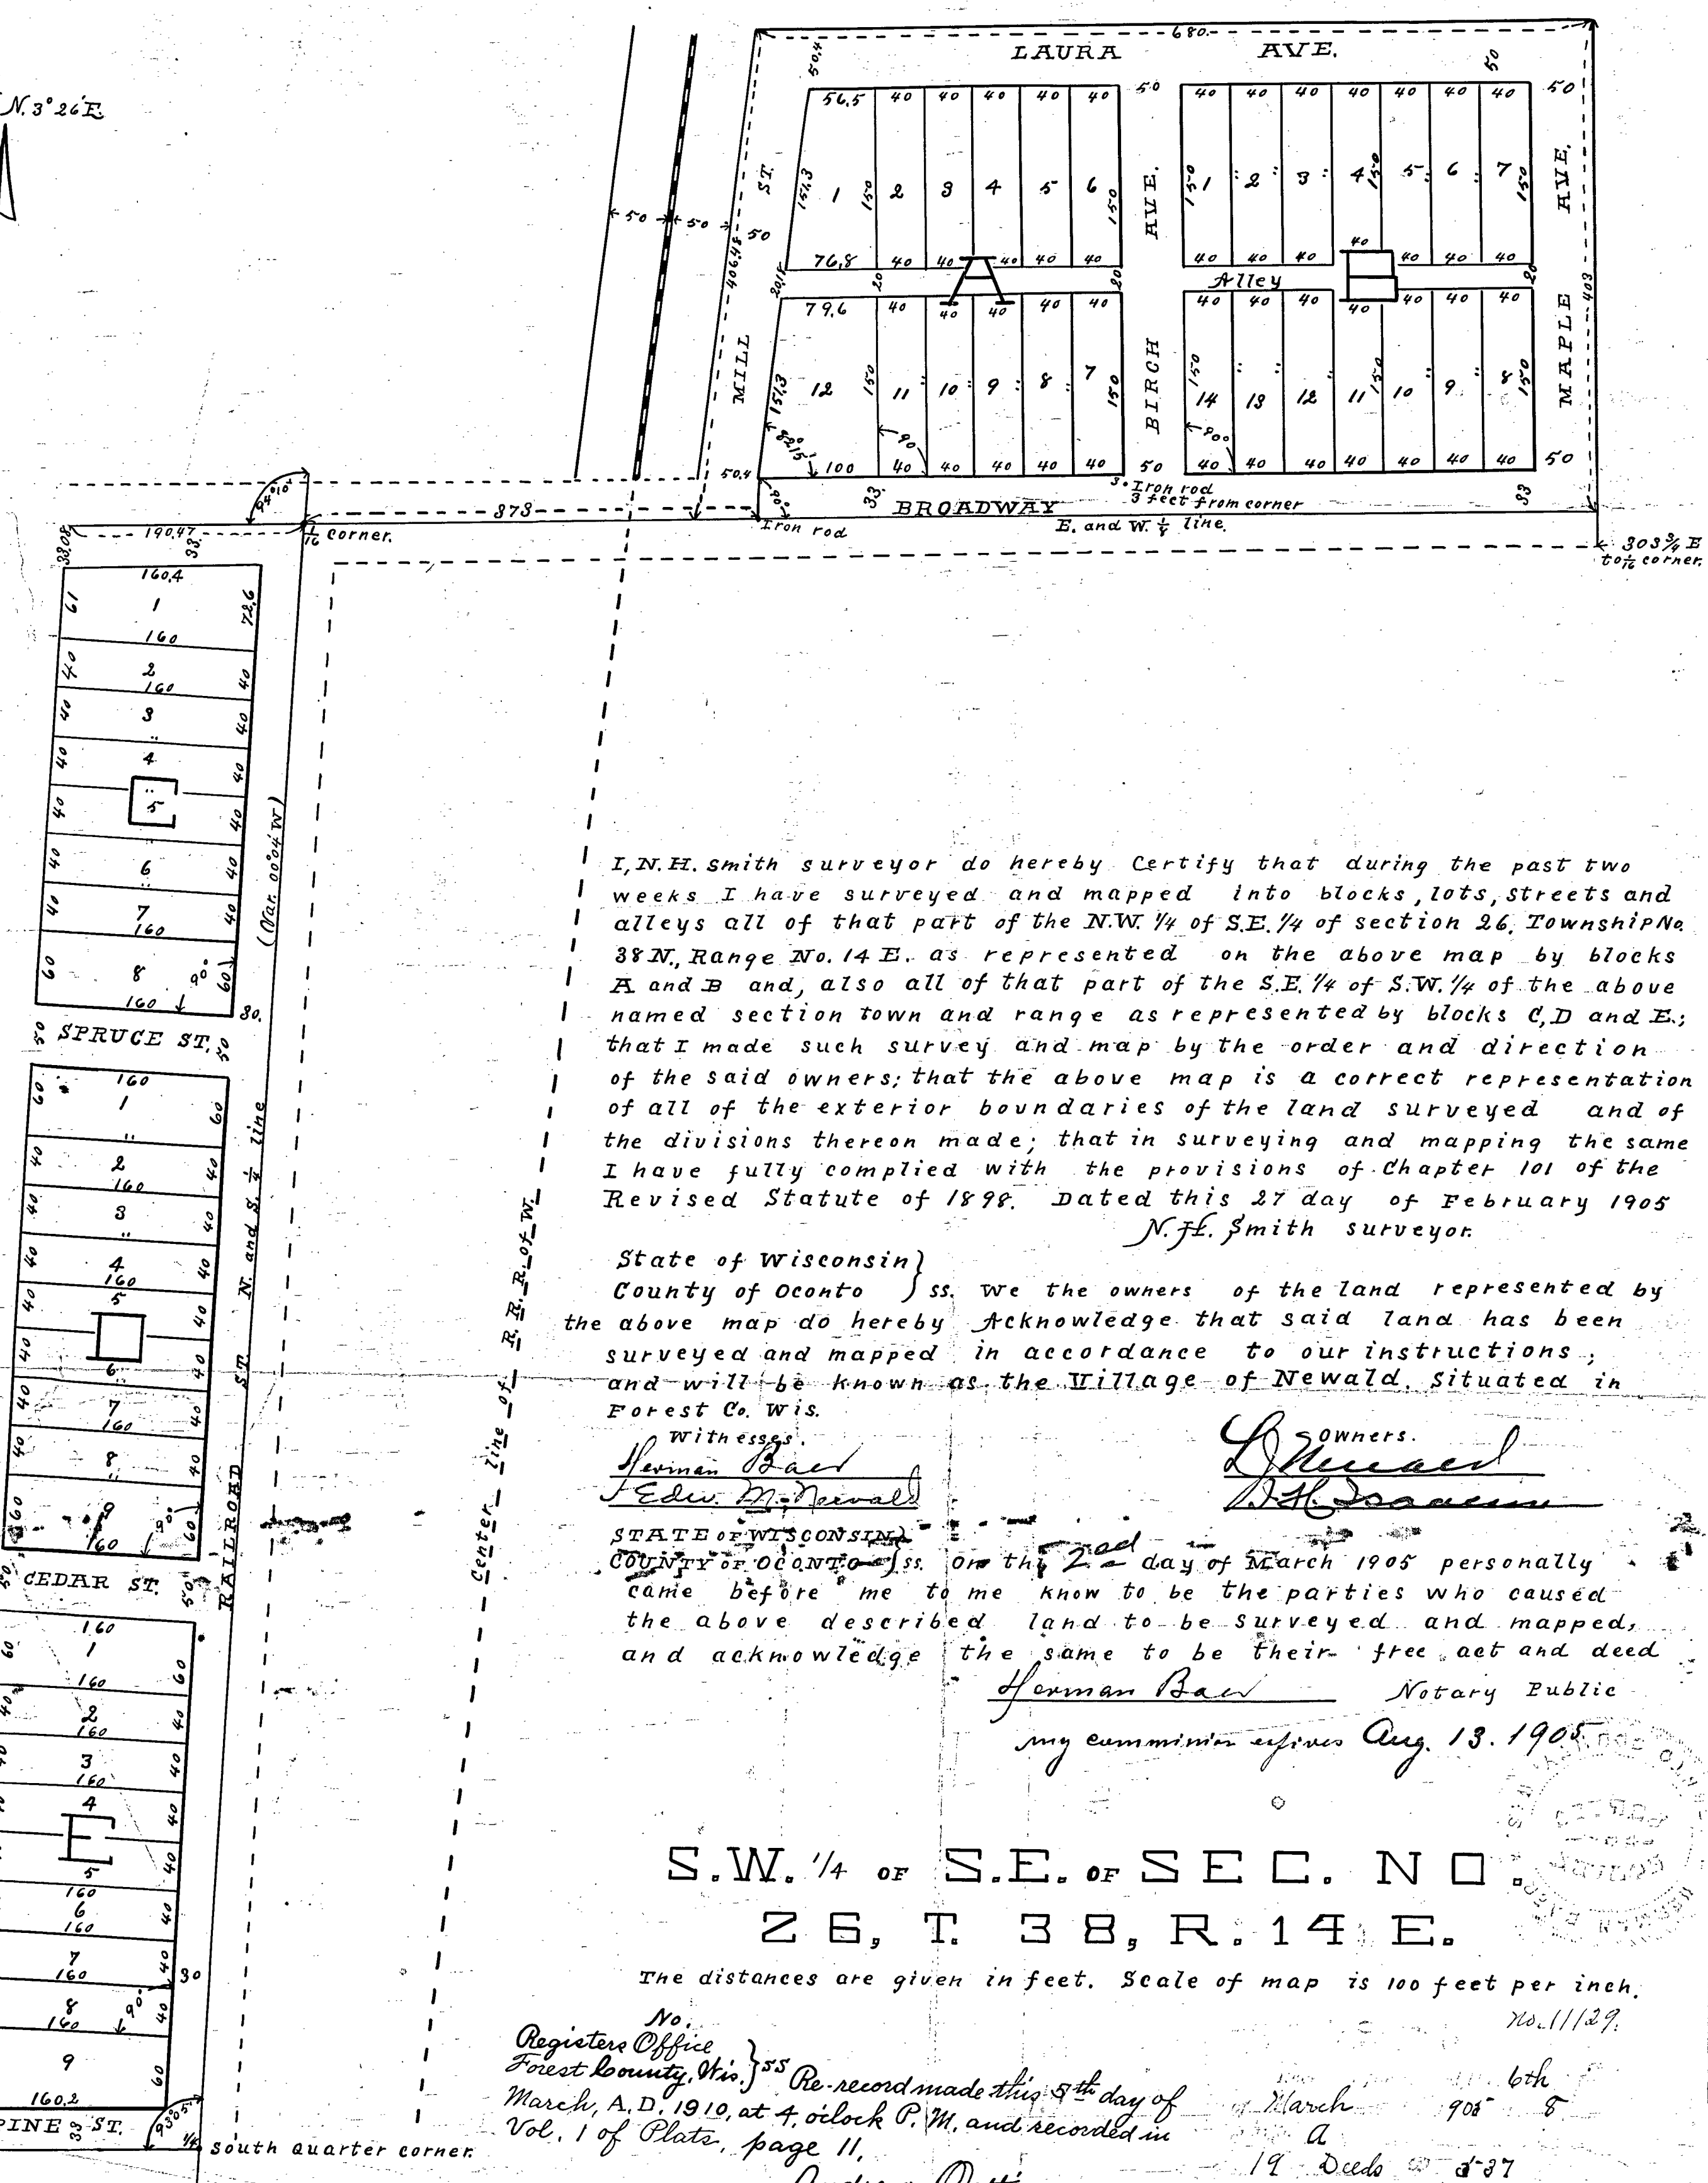 680.
LAURA AVE.
N. 3° 26' E.
50.4 50
56.5 40 40 40 40 40 50 40 40 40 40 40 40 40 50
ST. 151.3 1 150 2 3 4 5 6 150 AVE. 150 1 2 3 4 150 5 6 7 150 AVE.
50 50 50
406.48
76.8 40 40 40 40 40 40 40 40 40 40 40 40
A Alley B
20 20 20
79.6 40 40 40 40 40 40 40 40 40 40 40 40
403
MILL BIRCH MAPLE
151.3 12 150 11 10 9 8 7 150 150 14 13 12 11 150 10 9 8 150
82°15' 90 90°
50.4 100 40 40 40 40 40 50 40 40 40 40 40 40 40 50
3. Iron rod
3 feet from corner
33 BROADWAY 33
878
Iron rod E. and W. ¼ line.
190.47 1/16 corner.
33.08 33
303¾ E
to 1/16 corner.
160.4
61 1 72.6
160
40 2 40
160
40 3 40
"
40 4 40
C
"
40 5 40
40 6 40
"
40 7 40
160
60 8 90° 60
160 80.
50 SPRUCE ST. 50
(Var. 00°04' W)
160
60 1 60
"
40 2 40
160
40 3 40
"
40 4 40
160
40 5 40
D
40 6 40
40 7 40
160
40 8 40
"
60 9 90° 60
160
50 CEDAR ST. 50
RAILROAD ST. N. and S. ¼ line
Center line of R. R. R. of W.
160
60 1 60
160
40 2 40
160
3 40
160
4 40
E
5 40
160
6 40
160
7 40
160 30
8 90° 40
160
9 60
160.2
PINE 33 ST. 93°05'
¼ South quarter corner.
I, N. H. Smith surveyor do hereby Certify that during the past two
weeks I have surveyed and mapped into blocks, lots, Streets and
alleys all of that part of the N.W. ¼ of S.E. ¼ of section 26, Township No.
38 N., Range No. 14 E. as represented on the above map by blocks
A and B and, also all of that part of the S.E. ¼ of S.W. ¼ of the above
named section town and range as represented by blocks C, D and E.;
that I made such survey and map by the order and direction
of the said owners; that the above map is a correct representation
of all of the exterior boundaries of the land surveyed and of
the divisions thereon made; that in surveying and mapping the same
I have fully complied with the provisions of Chapter 101 of the
Revised Statute of 1898. Dated this 27 day of February 1905
N. H. Smith surveyor.
State of Wisconsin}
County of Oconto } ss. We the owners of the land represented by
the above map do hereby Acknowledge that said land has been
surveyed and mapped in accordance to our instructions;
and will be known as the Village of Newald. Situated in
Forest Co. Wis.
Witnesses. owners.
Herman Baer
Edw. M. Newald
STATE OF WISCONSIN}
COUNTY OF OCONTO }ss. On the 2nd day of March 1905 personally
came before me to me know to be the parties who caused
the above described land to be surveyed and mapped,
and acknowledge the same to be their free act and deed
Herman Baer Notary Public
my commission expires Aug. 13. 1905
S.W. ¼ OF S.E. OF SEC. NO.
26, T. 38, R. 14 E.
The distances are given in feet. Scale of map is 100 feet per inch.
No. No. 11129.
Registers Office
Forest County, Wis. }ss Re-record made this 8th day of
March, A.D. 1910, at 4, o'clock P. M. and recorded in
Vol. 1 of Plats, page 11.
6th
March 1905 8
A
19 Deeds